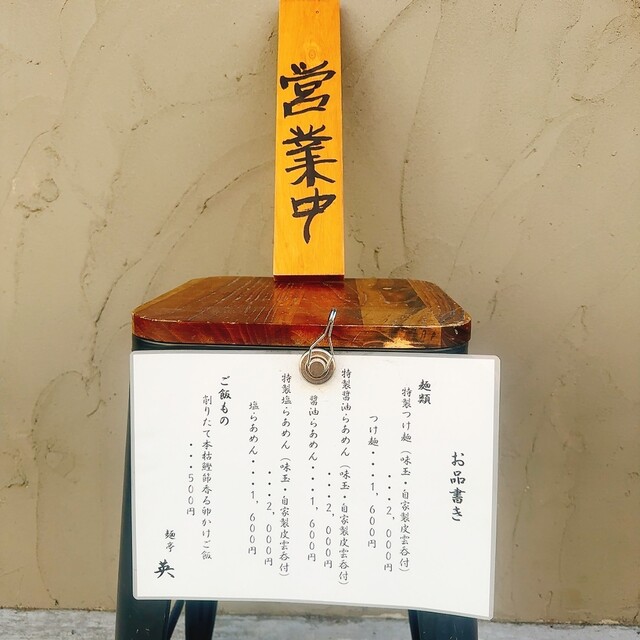 営業中
お品書き
麺類
特製つけ麺（味玉・自家製皮雲呑付）
・・・２，０００円
つけ麺・・・１，６００円
特製醬油らあめん（味玉・自家製皮雲呑付）
・・・２，０００円
醬油らあめん・・・１，６００円
特製塩らあめん（味玉・自家製皮雲呑付）
・・・２，０００円
塩らあめん・・・１，６００円
ご飯もの
削りたて本枯鰹節香る卵かけご飯
・・・５００円
麺亭 英